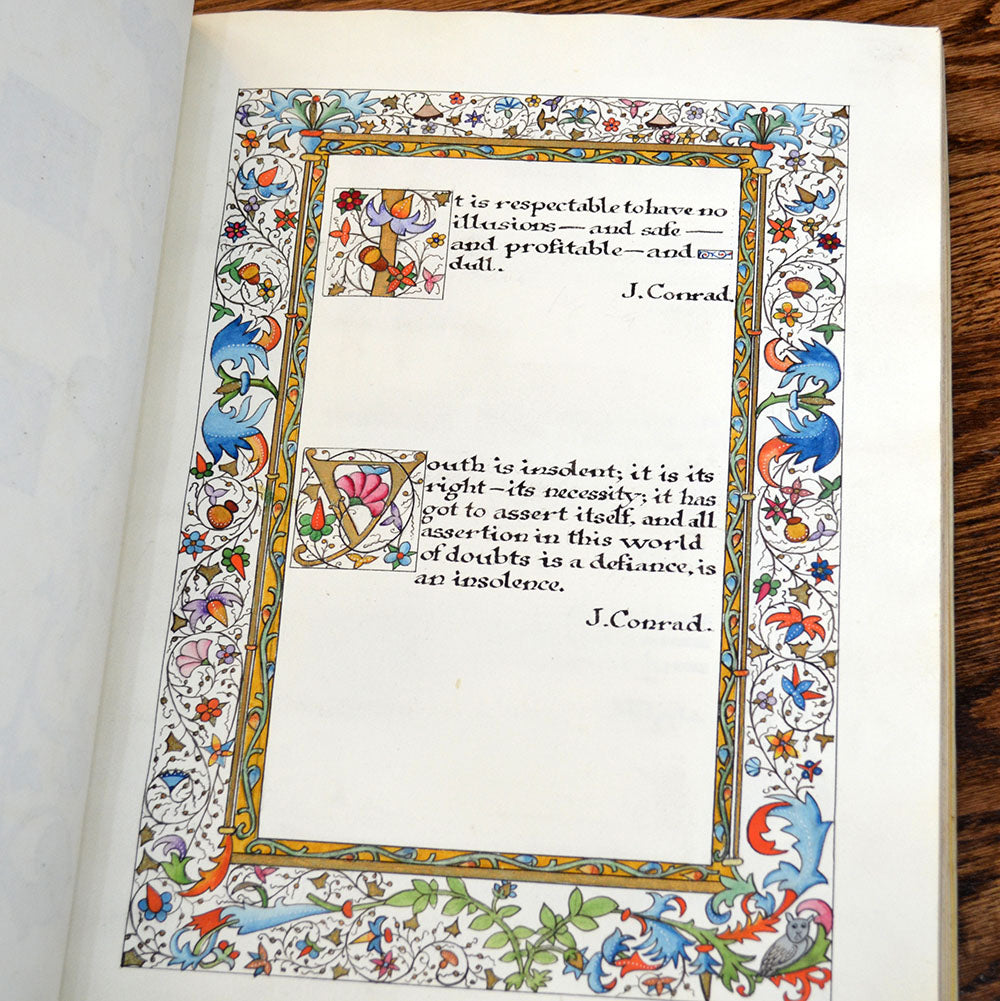 It is respectable to have no
illusions — and safe —
and profitable — and
dull.
J. Conrad.
Youth is insolent; it is its
right — its necessity; it has
got to assert itself, and all
assertion in this world
of doubts is a defiance, is
an insolence.
J. Conrad.